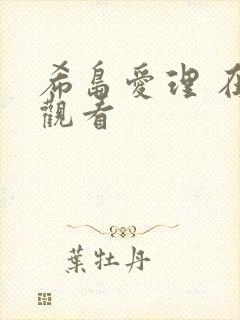 希島愛理 在
觀看
葉牡丹